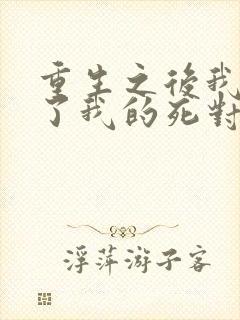 重生之後我
了我的死對
浮萍游子客